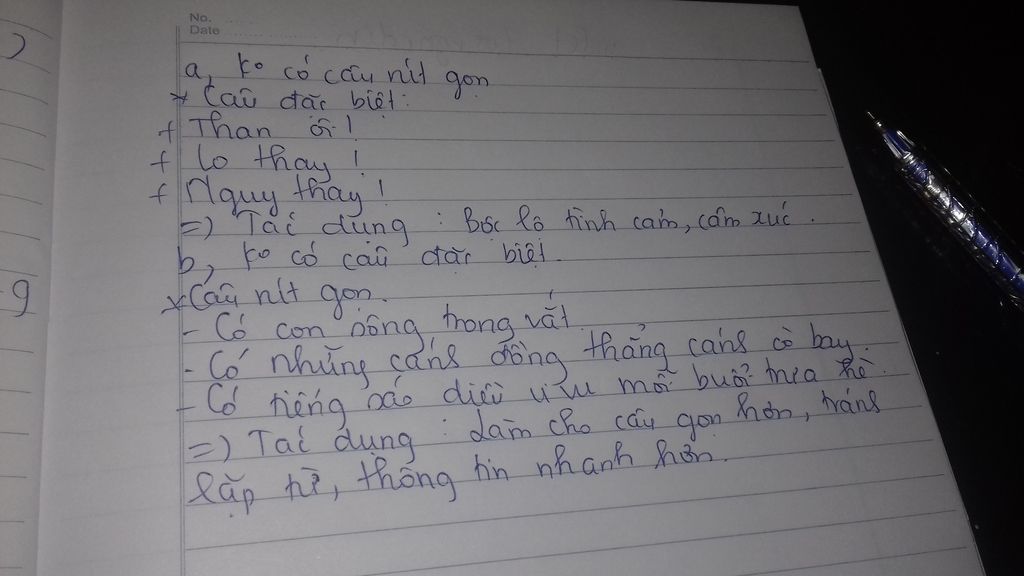 No.
Date
a, ko có câu rút gọn
* Câu đặc biệt:
+ Than ôi!
+ Lo thay!
+ Nguy thay!
=) Tác dụng: Bộc lộ tình cảm, cảm xúc.
b, ko có câu đặc biệt.
* Câu rút gọn.
- Có con sông trong vắt.
- Có những cánh đồng thẳng cánh cò bay.
- Có tiếng sáo diều vi vu mỗi buổi trưa hè.
=) Tác dụng: Làm cho câu gọn hơn, tránh
lặp từ, thông tin nhanh hơn.
g